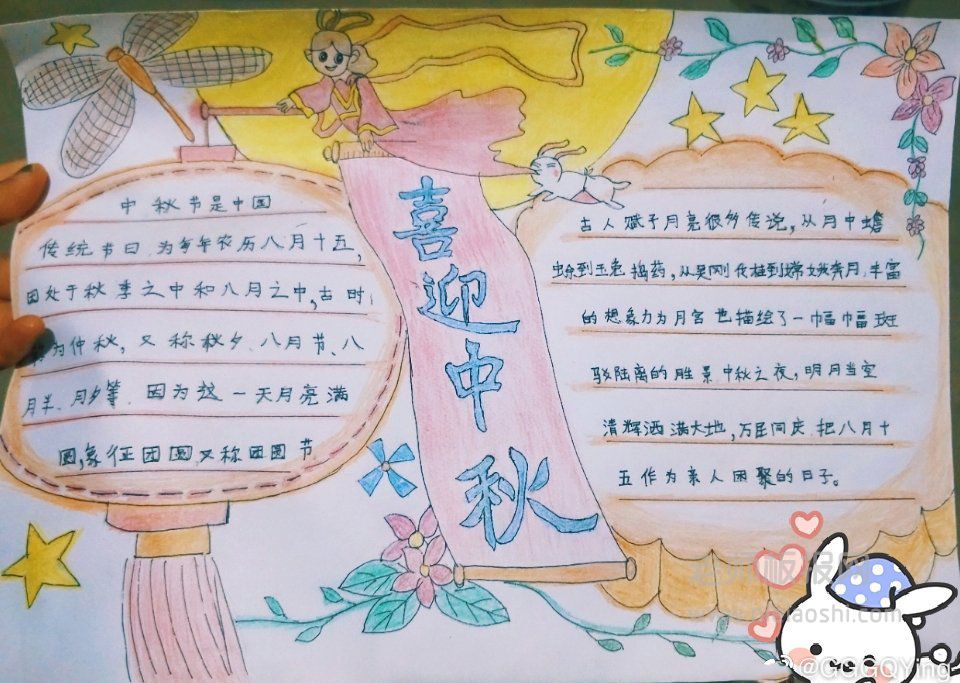 中秋节是中国
传统节日,为每年农历八月十五,
因处于秋季之中和八月之中,古时
为仲秋,又称秋夕、八月节、八
月半、月夕等,因为这一天月亮满
圆,象征团圆,又称团圆节
喜迎中秋
古人赋予月亮很多传说,从月中蟾
蜍到玉兔捣药,从吴刚伐桂到嫦娥奔月,丰富
的想象力为月宫也描绘了一幅幅斑
驳陆离的胜景.中秋之夜,明月当空
清辉洒满大地,万民同庆.把八月十
五作为亲人团聚的日子。
@GGGQYing